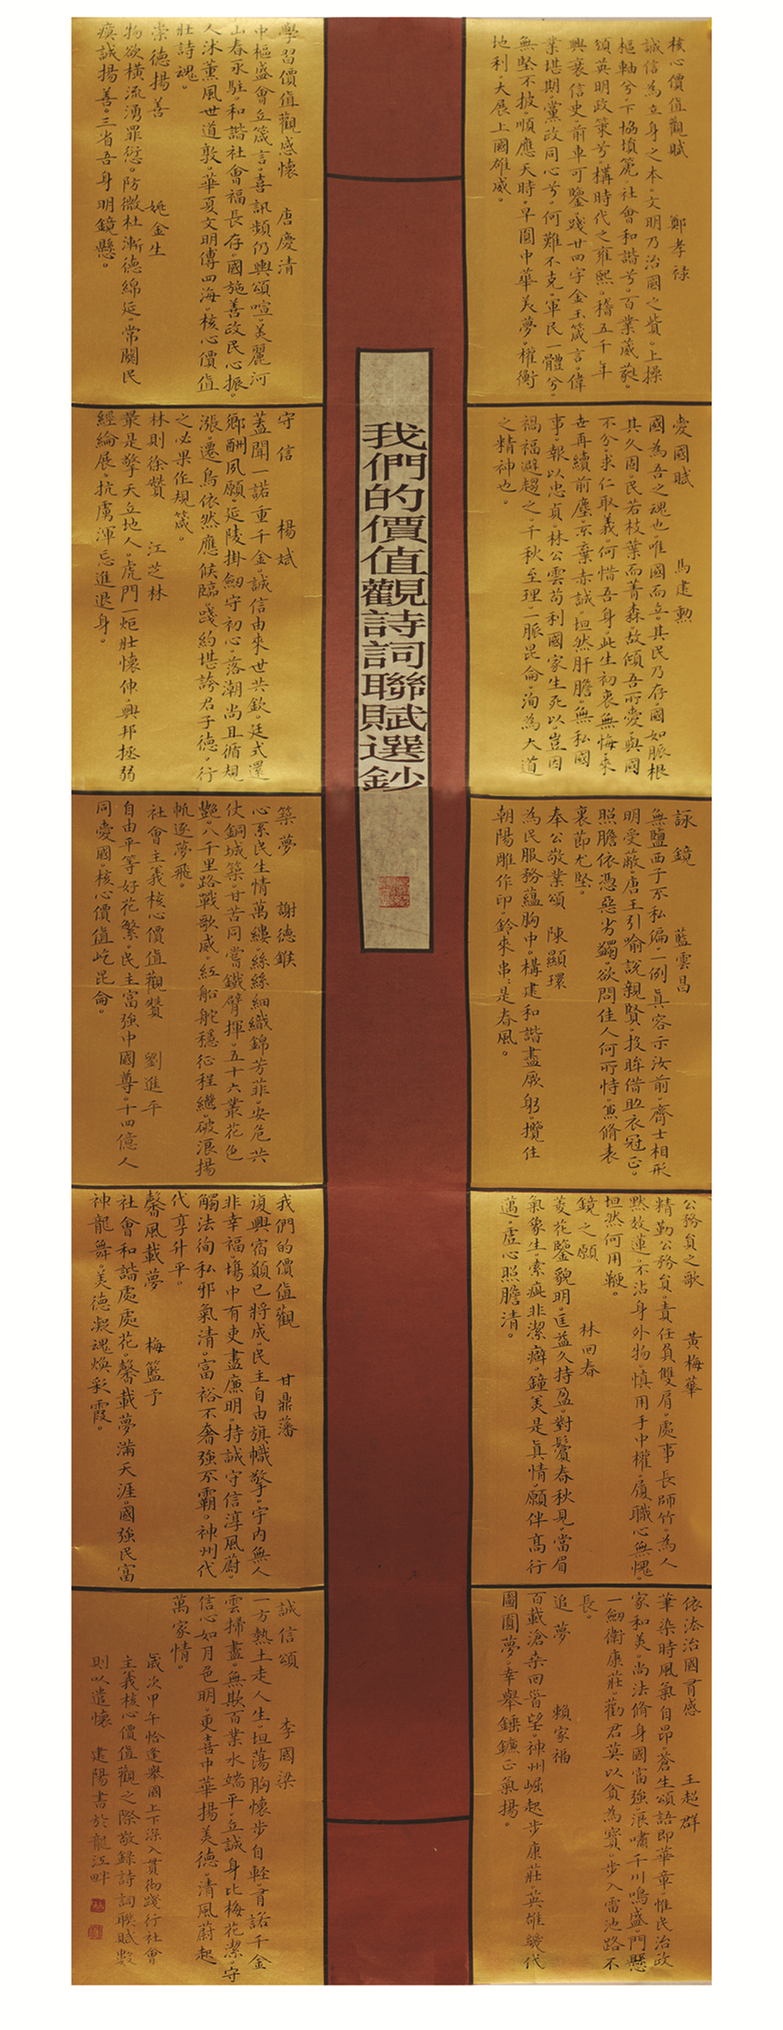 核心價值觀賦 鄭孝禄
誠信為立身之本。文明乃治國之貲。上操
樞軸兮。下協塤箎。社會和諧兮。百業葳蕤。
頌英明政策兮。構時代之雍熙。稽五千年
興衰信史。前車可鑒。踐廿四字金玉箴言。偉
業堪期。黨政同心兮。何難不克。軍民一體兮。
無堅不披。順應天時。早圓中華美夢。權衡
地利。大展上國雄威。
愛國賦 馬建勲
國為吾之魂也。唯國而立。其民乃存。國如脈根
其久固。民若枝葉而菁森。故傾吾所愛。與國
不分。求仁取義。何惜吾身。此生初衷無悔。來
世再續前塵。棄赤誠。坦然肝膽。無私國
事。報以忠貞。林公雲苟利國家生死以。豈因
禍福避趨之。千秋至理。二脈昆侖。洵為大道
之精神也。
詠鏡 藍雲昌
無鹽西子不私偏。一例真容示汝前。齊士相形
明受蔽。唐王引喻說親賢。投眸借助衣冠正。
照膽依憑惡劣蠲。欲問佳人何所恃。兼脩表
裏節尤堅。
奉公敬業頌 陳顯環
為民服務蘊胸中。構建和諧盡厥躬。攬住
朝陽雕作印。鈴來串串是春風。
公務員之歌 黃梅華
精勤公務員。責任負雙肩。處事長師竹。為人
黙效蓮。不沾身外物。慎用手中權。履職心無愧。
坦然何用鞭。
鏡之願 林回春
菱花鑒貌明。匡益久持盈。對鬢春秋見。當眉
氣象生。索瘢非潔癖。鐘美是真情。願伴高行
邁。虛心照膽清。
依法治國有感 王超群
華染時風氣自昂。蒼生頌語即華章。惟民治政
家和美。尚法脩身國富強。浪嘯千川鳴盛。門懸
一劍衛康莊。勸君莫以貪為寶。步入雷池路不
長。
追夢 賴家福
百載滄桑回首望。神州崛起步康莊。英雄幾代
圖圓夢。幸舉錘鐮正氣揚。
我們的價值觀詩詞聯賦選鈔
學習價值觀感懷 唐慶清
中樞盛會立箴言。喜訊頻仍興頌喧。美麗河
山春永駐。和諧社會福長存。國施善政民心振。
人沐薰風世道敦。華夏文明傳四海。核心價值
壯詩魂。
崇德揚善 姚金生
物欲橫流湧罪愆。防微杜漸德綿延。常關民
瘼誠揚善。三省吾身明鏡懸。
守信 楊斌
蓋聞一諾重千金。誠信由來世共欽。廷式還
鄉酬夙願。延陵掛劍守初心。落潮尚且循規
漲。遷鳥依然應候臨。踐約堪誇君子德。行
之必果作規箴。
林則徐贊 江芝林
最是擎天立地人。虎門一炬壯懷伸。興邦拯弱
經綸展。抗虜渾忘進退身。
築夢 謝德錐
心系民生情萬縷。絲絲細織錦芳菲。安危共
仗銅城築。甘苦同嘗鐵臂揮。五十六叢花色
艷。八千里路戰歌威。紅船舵穩征程繼。破浪揚
帆逐夢飛。
社會主義核心價值觀贊 劉進平
自由平等好花繁。民主富強中國尊。十四億人
同愛國。核心價值屹昆侖。
我們的價值觀 甘鼎藩
復興宿願已將成。民主自由旗幟擎。宇內無人
非幸福。塲中有吏盡廉明。持誠守信淳風蔚。
觸法徇私邪氣清。富裕不奢強不霸。神州代
代享升平。
馨風載夢 梅籃予
社會和諧處處花。馨載夢滿天涯。國強民富
神龍舞。美德凝魂煥彩霞。
誠信頌 李國梁
一方熱土走人生。坦蕩胸懷步自輕。肯諾千金
雲掃盡。無欺百業水端平。立誠身比梅花潔。守
信心如月色明。更喜中華揚美德。清風蔚起
萬家情。
歲次甲午恰逢舉國上下深入貫彻踐行社會
主義核心價值觀之際敬錄詩詞聯賦數
則以遣懷 建陽書於龍江畔